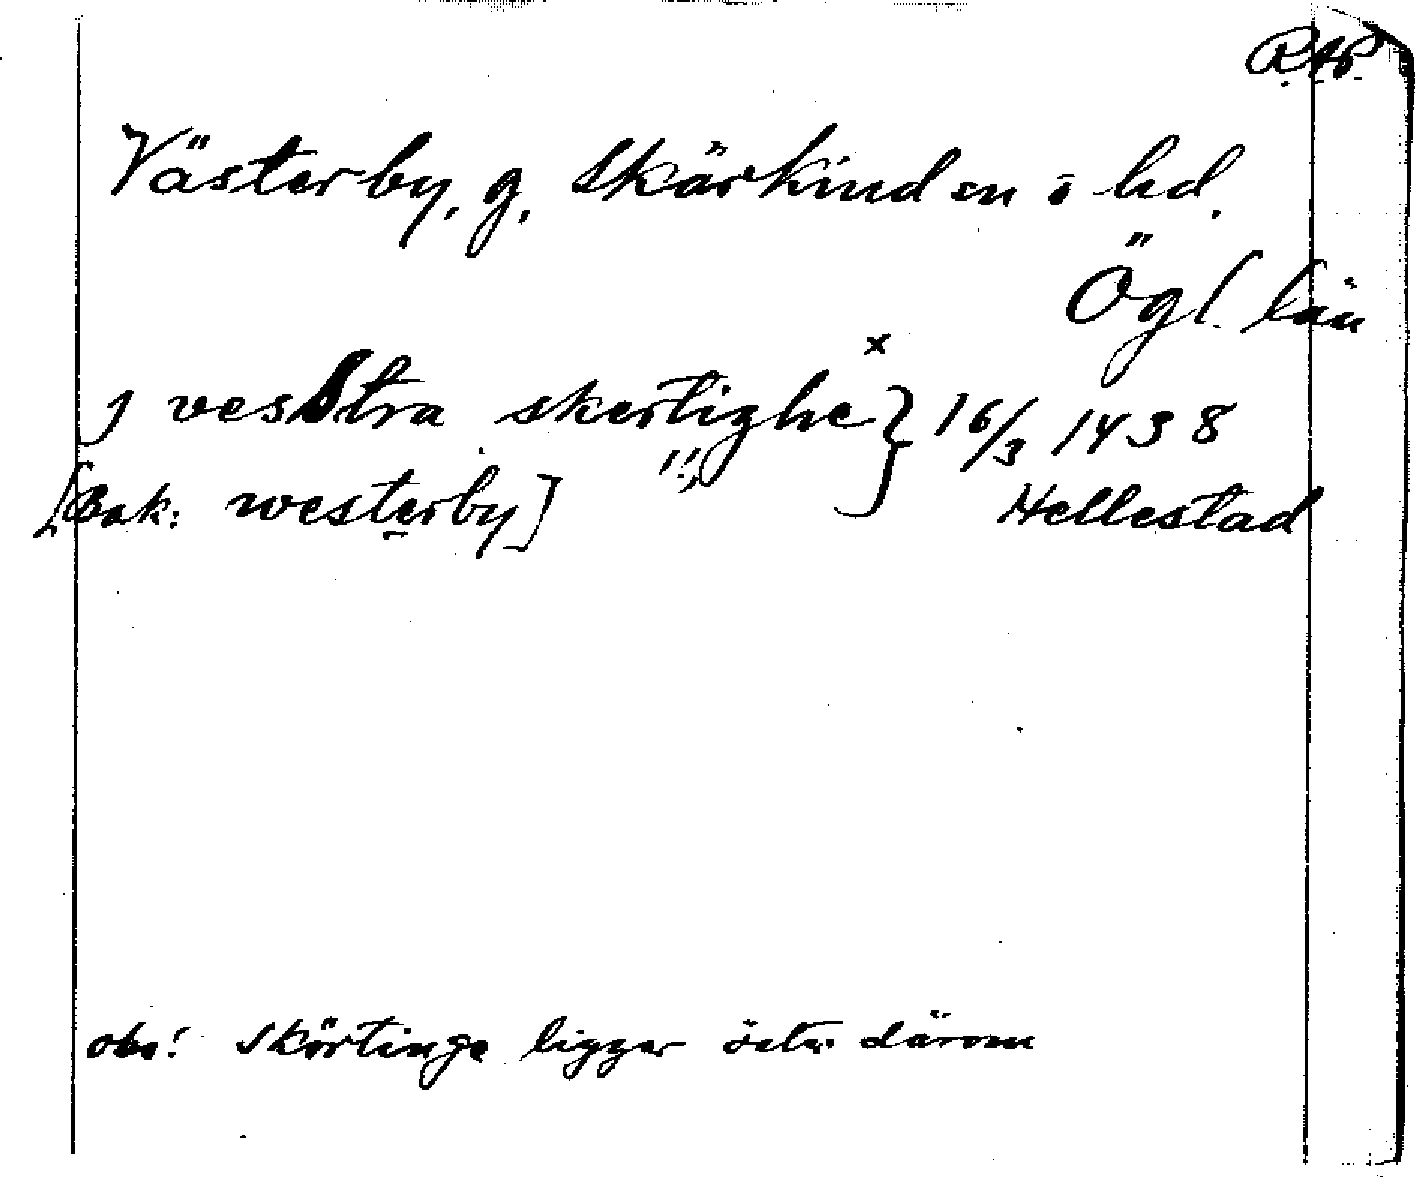 RAP
Västerby, g. Skärkind sn o hd.
Ögl. län
J vesstra skertighe x } 16/3 1438
[Bak: westerby] "!" Hellestad
obs! Skörtinge ligger öster därom